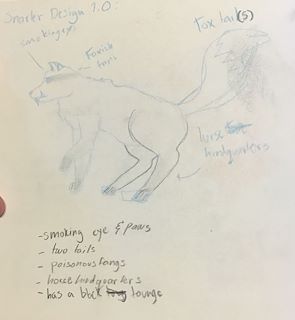 Snarler Design 1.0:
smoking eyes
Foxish
Fox tail(s)
horse
hindquarters
- smoking eye & paws
- two tails
- poisonous fangs
- horse hindquarters
- has a blck tounge